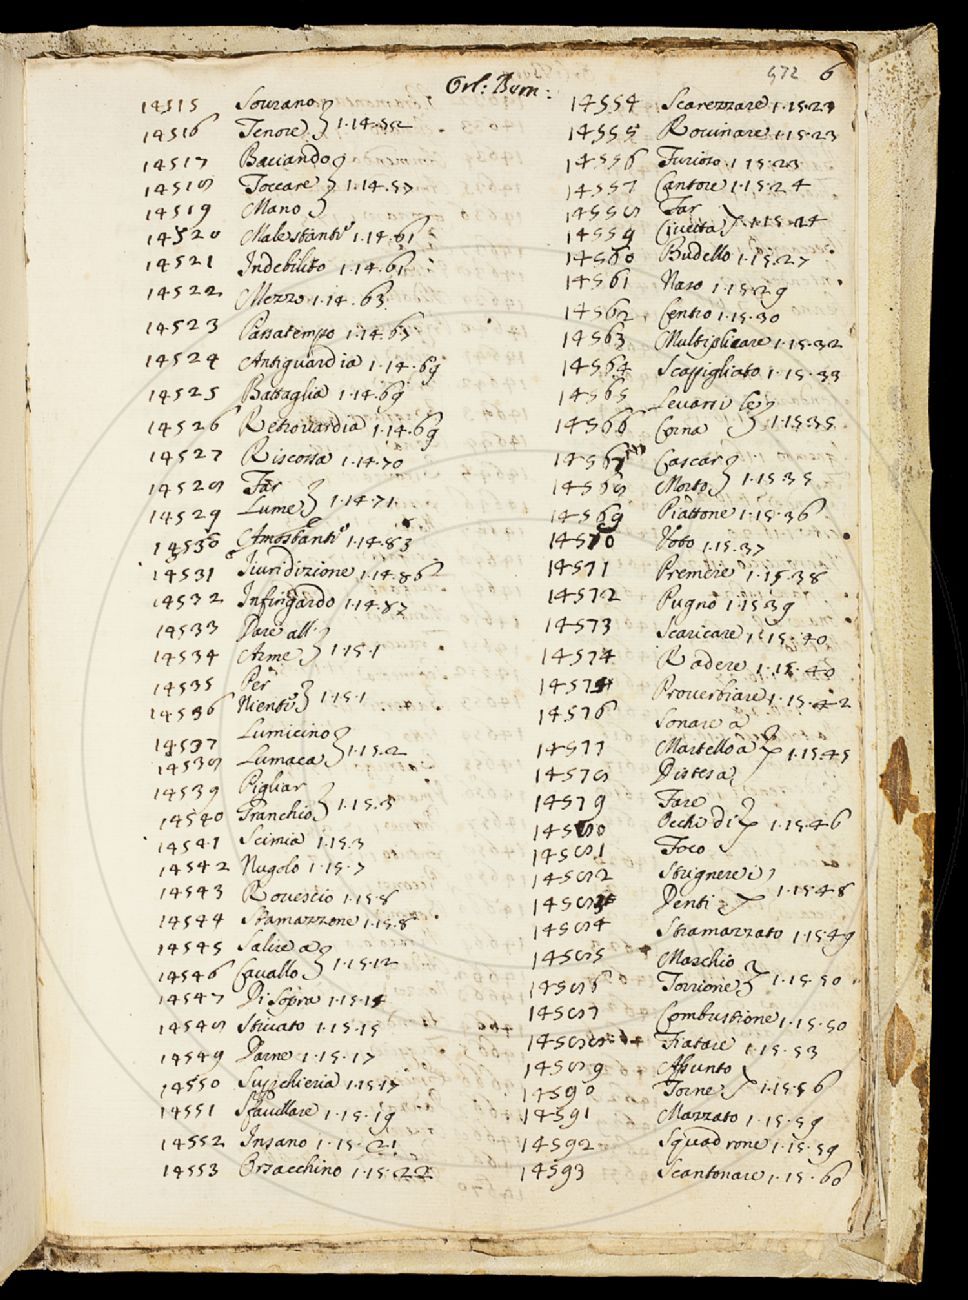 572 6
Orl: Bern:
14515 Sourano
14516 Tenore } 1.14.52
14517 Baciando
14518 Toccare } 1.14.57
14519 Mano
14520 Malestanti 1.14.61
14521 Indebilito 1.14.61
14522 Mezzo 1.14.63
14523 Passatempo 1.14.65
14524 Antiguardia 1.14.69
14525 Battaglia 1.14.69
14526 Retrouardia 1.14.69
14527 Riscossa 1.14.70
14528 Far
14529 Lume } 1.14.71
14530 Amostanti 1.14.83
14531 Iuridizione 1.14.86
14532 Infingardo 1.14.87
14533 Dare all'
14534 Arme } 1.15.1
14535 Per
14536 Niente } 1.15.1
14537 Lumicino
14538 Lumaca } 1.15.2
14539 Pigliar
14540 Granchio } 1.15.3
14541 Scimia 1.15.3
14542 Nugolo 1.15.7
14543 Rouescio 1.15.8
14544 Stramazzone 1.15.8
14545 Salire a
14546 Cauallo } 1.15.12
14547 Di Sopra 1.15.14
14548 Stiuato 1.15.15
14549 Darne 1.15.17
14550 Supchieria 1.15.17
14551 Sfauillare 1.15.19
14552 Insano 1.15.21
14553 Orsacchino 1.15.22
14554 Scarezzare 1.15.23
14555 Rouinare 1.15.23
14556 Furioso 1.15.23
14557 Cantore 1.15.24
14558 Far
14559 Ciuetta } 1.15.24
14560 Budello 1.15.27
14561 Naso 1.15.29
14562 Centro 1.15.30
14563 Multiplicare 1.15.32
14564 Scapigliato 1.15.33
14565 Leuarsi le
14566 Corna } 1.15.35
14567 Cascar
14568 Morto } 1.15.35
14569 Piattone 1.15.36
14570 Voto 1.15.37
14571 Premere 1.15.38
14572 Pugno 1.15.39
14573 Scaricare 1.15.40
14574 Radere 1.15.40
14575 Prouerbiare 1.15.42
14576 Sonare a
14577 Martello a } 1.15.45
14578 Distesa
14579 Fare
14580 Occhi di } 1.15.46
14581 Foco
14582 Strignere i
14583 Denti } 1.15.48
14584 Stramazzato 1.15.49
14585 Maschio
14586 Torrione } 1.15.50
14587 Combustione 1.15.50
14588 Fiatare 1.15.53
14589 Assunto
14590 Torne } 1.15.56
14591 Mazzato 1.15.59
14592 Squadrone 1.15.59
14593 Scantonare 1.15.60